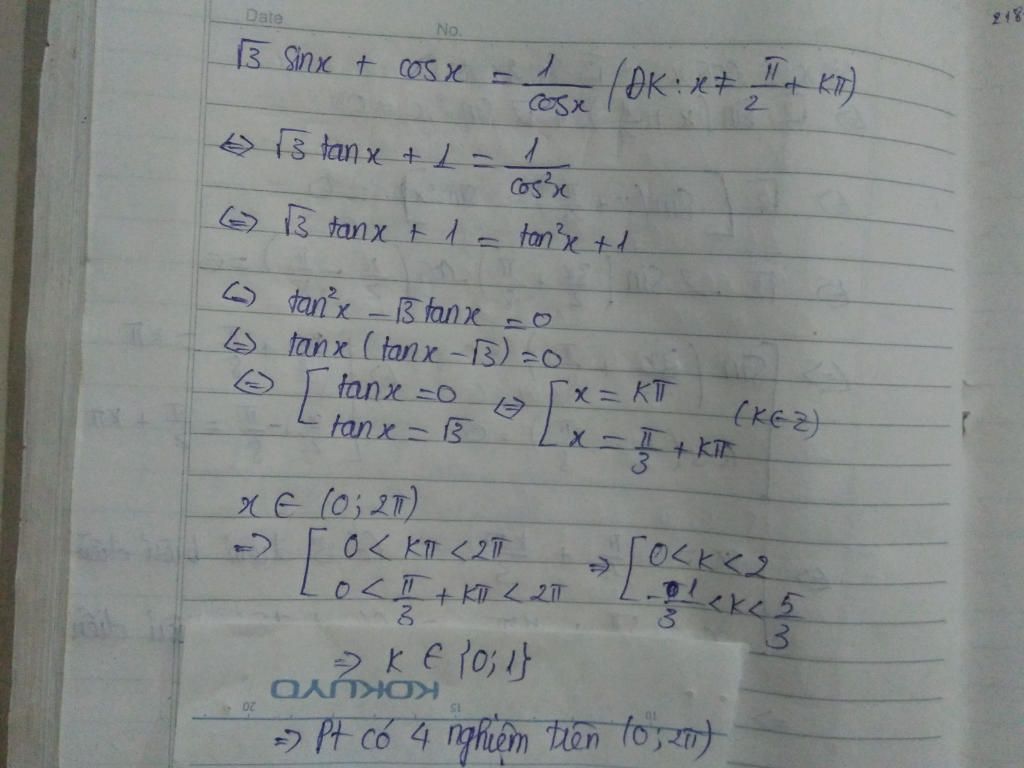 Date No.
218
√3 sinx + cosx = 1/cosx (ĐK: x ≠ π/2 + kπ)
⇔ √3 tanx + 1 = 1/cos²x
⇔ √3 tanx + 1 = tan²x + 1
⇔ tan²x - √3 tanx = 0
⇔ tanx (tanx - √3) = 0
⇔ [ tanx = 0 ; tanx = √3 ⇔ [ x = kπ ; x = π/3 + kπ (k∈Z)
x ∈ (0; 2π)
⇒ [ 0 < kπ < 2π ; 0 < π/3 + kπ < 2π ⇒ [ 0 < k < 2 ; -1/3 < k < 5/3
⇒ k ∈ {0; 1}
KOKUYO
20 15 10
⇒ Pt có 4 nghiệm tiên (0; 2π)